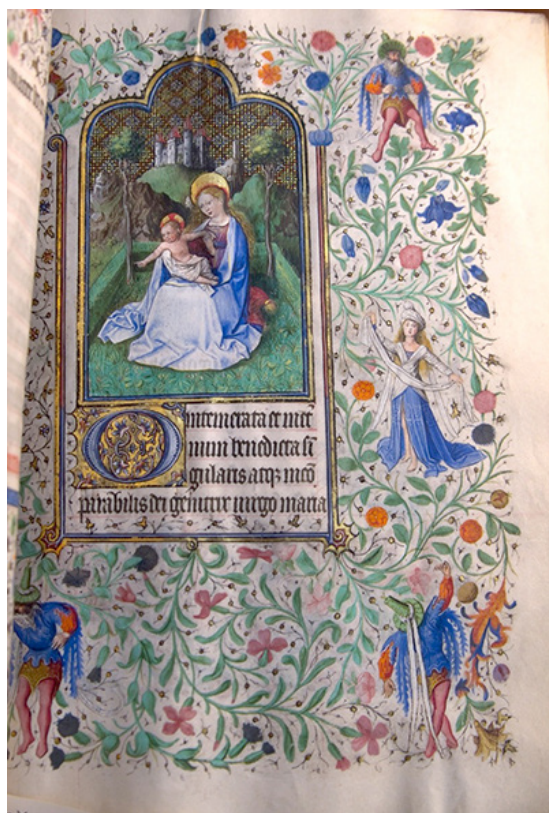 O intemerata et inte᷑
num benedicta si᷑
gularis atqꝫ incō
parabilis dei genitrix uirgo maria